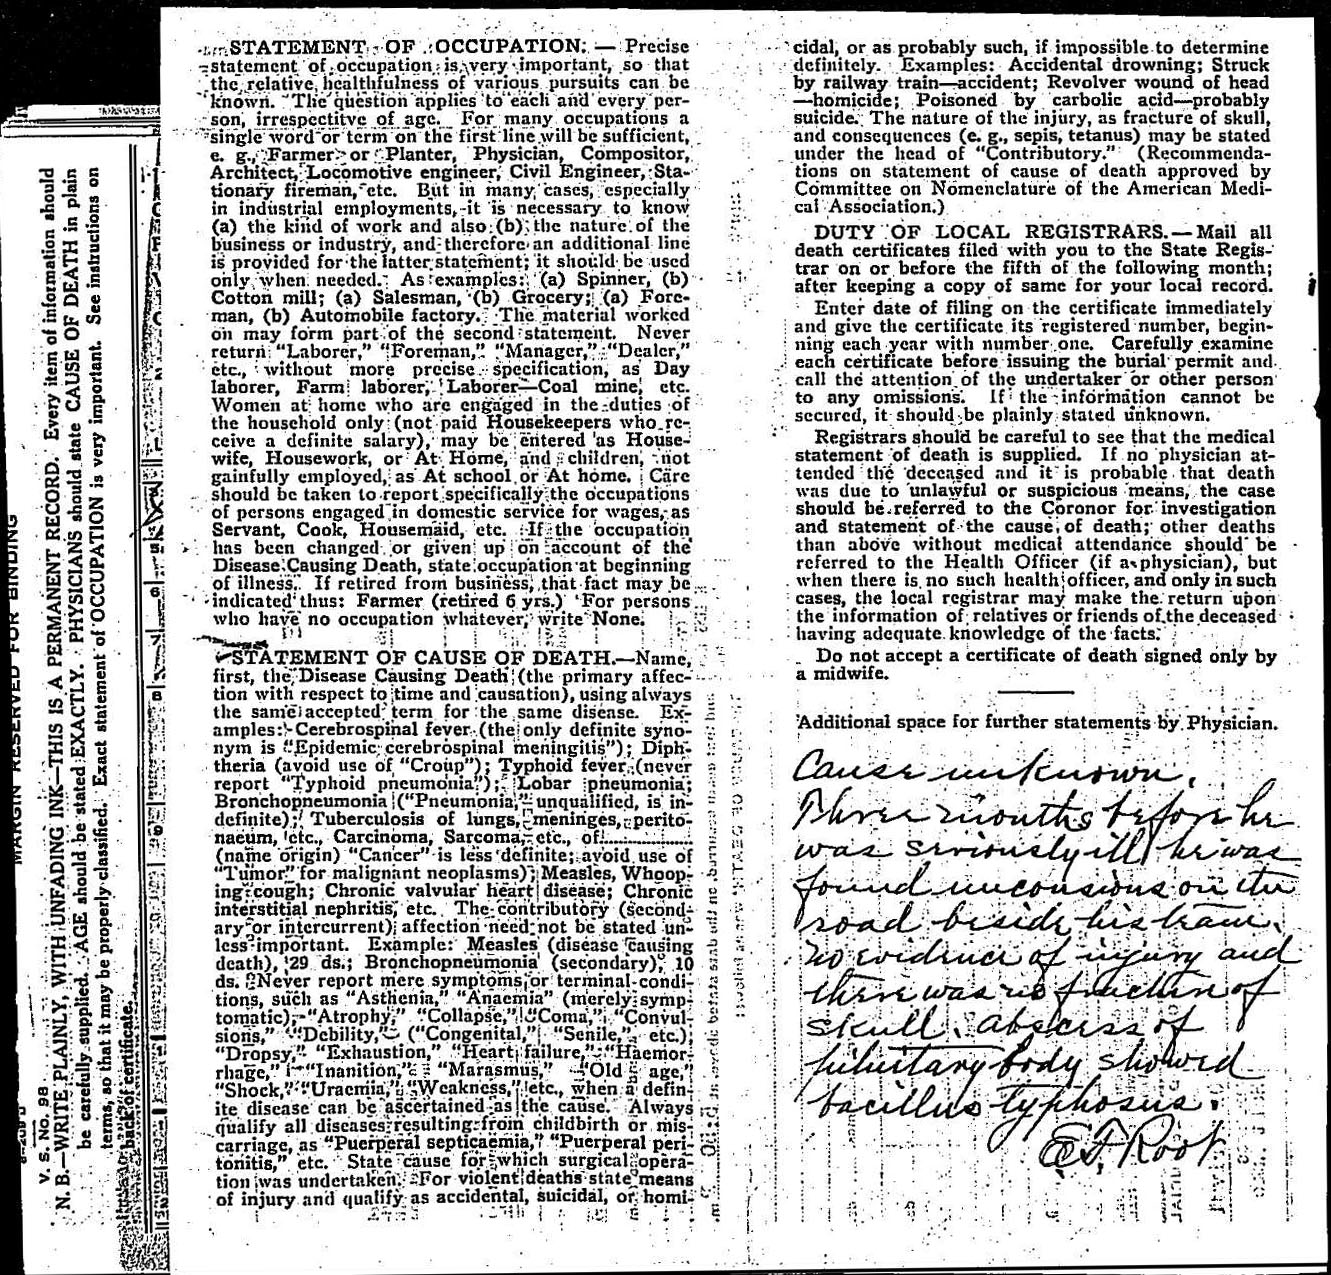 STATEMENT OF OCCUPATION. — Precise
statement of occupation is very important, so that
the relative healthfulness of various pursuits can be
known. The question applies to each and every per-
son, irrespectitve of age. For many occupations a
single word or term on the first line will be sufficient,
e. g., Farmer or Planter, Physician, Compositor,
Architect, Locomotive engineer, Civil Engineer, Sta-
tionary fireman, etc. But in many cases, especially
in industrial employments, it is necessary to know
(a) the kind of work and also (b) the nature of the
business or industry, and therefore an additional line
is provided for the latter statement; it should be used
only when needed. As examples: (a) Spinner, (b)
Cotton mill; (a) Salesman, (b) Grocery; (a) Fore-
man, (b) Automobile factory. The material worked
on may form part of the second statement. Never
return "Laborer," "Foreman," "Manager," "Dealer,"
etc., without more precise specification, as Day
laborer, Farm laborer, Laborer—Coal mine, etc.
Women at home who are engaged in the duties of
the household only (not paid Housekeepers who re-
ceive a definite salary), may be entered as House-
wife, Housework, or At Home, and children, not
gainfully employed, as At school or At home. Care
should be taken to report specifically the occupations
of persons engaged in domestic service for wages, as
Servant, Cook, Housemaid, etc. If the occupation
has been changed or given up on account of the
Disease Causing Death, state occupation at beginning
of illness. If retired from business, that fact may be
indicated thus: Farmer (retired 6 yrs.) For persons
who have no occupation whatever, write None.
STATEMENT OF CAUSE OF DEATH.—Name,
first, the Disease Causing Death (the primary affec-
tion with respect to time and causation), using always
the same accepted term for the same disease. Ex-
amples: Cerebrospinal fever (the only definite syno-
nym is "Epidemic cerebrospinal meningitis"); Diph-
theria (avoid use of "Croup"); Typhoid fever (never
report "Typhoid pneumonia"); Lobar pneumonia;
Bronchopneumonia ("Pneumonia," unqualified, is in-
definite); Tuberculosis of lungs, meninges, perito-
naeum, etc., Carcinoma, Sarcoma, etc., of..............
(name origin) "Cancer" is less definite; avoid use of
"Tumor" for malignant neoplasms); Measles, Whoop-
ing cough; Chronic valvular heart disease; Chronic
interstitial nephritis, etc. The contributory (second-
ary or intercurrent) affection need not be stated un-
less important. Example: Measles (disease causing
death), 29 ds.; Bronchopneumonia (secondary), 10
ds. Never report mere symptoms or terminal condi-
tions, such as "Asthenia," "Anaemia" (merely symp-
tomatic), "Atrophy," "Collapse," "Coma," "Convul-
sions," "Debility," ("Congenital," "Senile," etc.);
"Dropsy," "Exhaustion," "Heart failure," "Haemor-
rhage," "Inanition," "Marasmus," "Old age,"
"Shock," "Uraemia," "Weakness," etc., when a defin-
ite disease can be ascertained as the cause. Always
qualify all diseases resulting from childbirth or mis-
carriage, as "Puerperal septicaemia," "Puerperal peri-
tonitis," etc. State cause for which surgical opera-
tion was undertaken. For violent deaths state means
of injury and qualify as accidental, suicidal, or homi-
cidal, or as probably such, if impossible to determine
definitely. Examples: Accidental drowning; Struck
by railway train—accident; Revolver wound of head
—homicide; Poisoned by carbolic acid—probably
suicide. The nature of the injury, as fracture of skull,
and consequences (e. g., sepis, tetanus) may be stated
under the head of "Contributory." (Recommenda-
tions on statement of cause of death approved by
Committee on Nomenclature of the American Medi-
cal Association.)
DUTY OF LOCAL REGISTRARS.—Mail all
death certificates filed with you to the State Regis-
trar on or before the fifth of the following month;
after keeping a copy of same for your local record.
Enter date of filing on the certificate immediately
and give the certificate its registered number, begin-
ning each year with number one. Carefully examine
each certificate before issuing the burial permit and
call the attention of the undertaker or other person
to any omissions. If the information cannot be
secured, it should be plainly stated unknown.
Registrars should be careful to see that the medical
statement of death is supplied. If no physician at-
tended the deceased and it is probable that death
was due to unlawful or suspicious means, the case
should be referred to the Coronor for investigation
and statement of the cause of death; other deaths
than above without medical attendance should be
referred to the Health Officer (if a physician), but
when there is no such health officer, and only in such
cases, the local registrar may make the return upon
the information of relatives or friends of the deceased
having adequate knowledge of the facts.
Do not accept a certificate of death signed only by
a midwife.
Additional space for further statements by Physician.
Cause unknown.
Three months before he
was seriously ill he was
found unconsious on the
road beside his team.
No evidence of injury and
there was no fracture of
skull. abscess of
pituitary body showed
bacillus typhosus.
E. F. Root
MARGIN RESERVED FOR BINDING
V. S. No. 98
N. B.—WRITE PLAINLY, WITH UNFADING INK—THIS IS A PERMANENT RECORD. Every item of information should
be carefully supplied. AGE should be stated EXACTLY. PHYSICIANS should state CAUSE OF DEATH in plain
terms, so that it may be properly classified. Exact statement of OCCUPATION is very important. See instructions on
back of certificate.